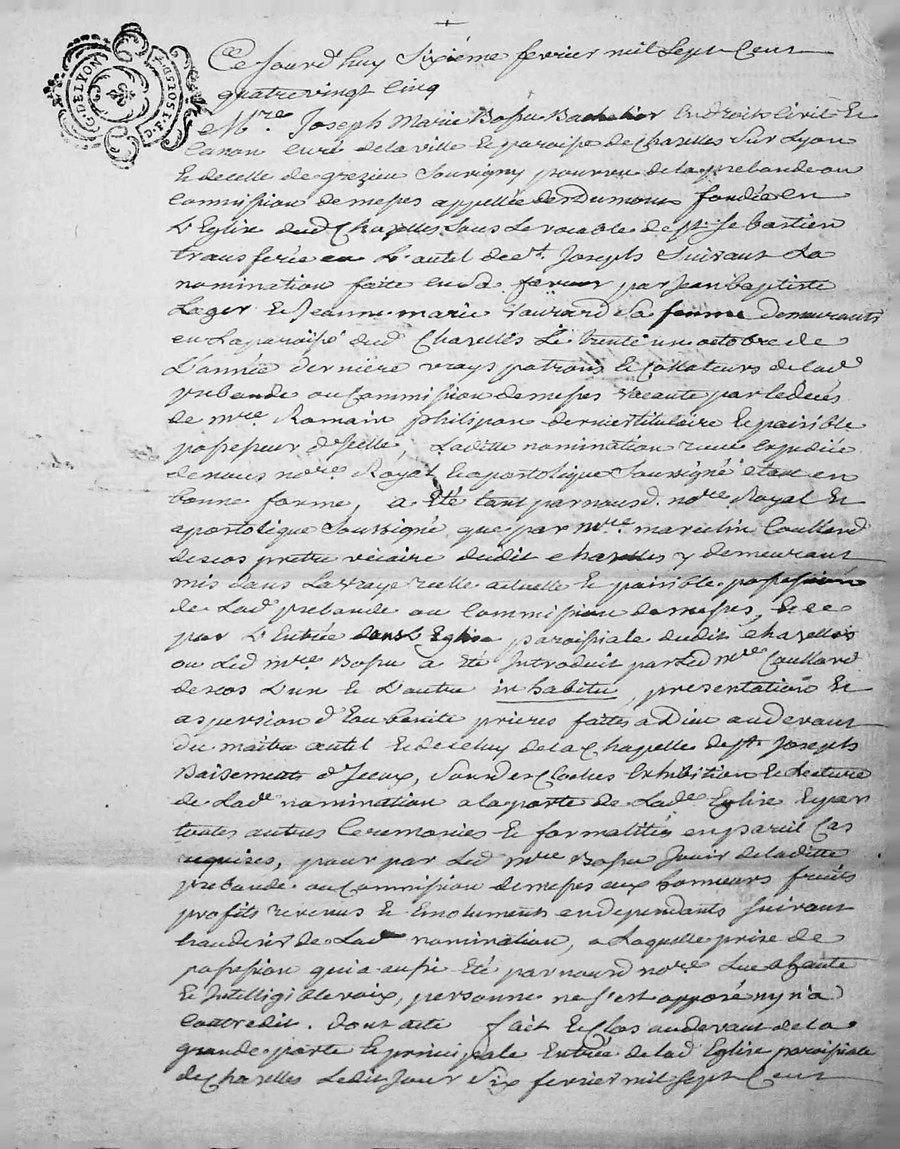 G. DE LYON
Ce Jourd'huy Sixième fevrier mil Sept Cent
quatrevingt Cinq
Mre. Joseph Marie Bossu Bachelier En droits Civil Et
Canon curé de la ville Et paroisse de Chazelles Sur Lyon
Et de celle de grezieu Souvigny pourvu de la prebande ou
Commission de messes appellée des Dumont fondée en
L'Eglise dud. Chazelles Sous Le vocable de St. Sebastien
transferée en L'autel de St. Joseph Suivant La
nomination faite en Sa faveur par Jean baptiste
Lager Et Jeanne marie Sa femme demeurants
en La paroisse dud. Chazelles Le trente un octobre de
L'année derniere vrays patrons Et Collateurs de lad.
prebande ou Commission de messes vacante par le decés
de mre. Romain philipon dernier titulaire Et paisible
possesseur d'Icelle, Laditte nomination recue Expediée
de nous nore. Royal Et apostolique Soussigné Etant en
bonne forme, a Eté tant par nousd. nore. Royal Et
apostolique Soussigné que par mre. marcelin Coullard
descos pretre vicaire dudit chazelles y demeurant
mis dans La vraye reelle actuelle Et paisible possession
de Lad. prebande ou Commission de messes, Et ce
par L'Entrée dans L'Eglise paroissiale dudit chazelles
ou Led. mre. Bossu a Eté Introduit par Led. mre. Coullard
descos L'un Et L'autre in habitu, presentation Et
aspersion d'Eau benite prieres faites a Dieu au devant
du maitre autel Et de celuy de la Chapelle de St. Joseph
Baisements d'Iceux, Son des Cloches Exhibition Et Lecture
de Lade. nomination a la porte de Lade. Eglise Et par
toutes autres Ceremonies Et formalités en pareil Cas
requises, pour par Led. mre. Bossu Jouir de laditte
prebande ou Commission de messes aux honneurs fruits
profits revenus Et Emoluments en dependants Suivant
La teneur de Lad. nomination, a Laquelle prise de
possession qui a aussi Eté par nousd. nore. Lue a haute
Et Intelligible voix, personne ne s'est opposé ny n'a
Contredit. Dont acte fait Et Clos au devant de la
grande porte Et principale Entrée de lad. Eglise paroissiale
de Chazelles Ledit Jour Six fevrier mil Sept Cent